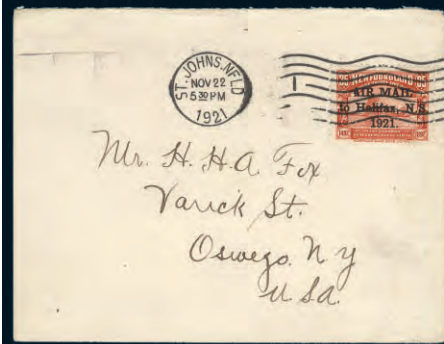 ST. JOHN'S, NFLD
NOV 22
5 30 PM
1921
35 NEWFOUNDLAND 35
AIR MAIL
to Halifax, N.S.
1921.
Mr. H. H. A. Fox
Varick St.
Oswego. N Y
U Sa.